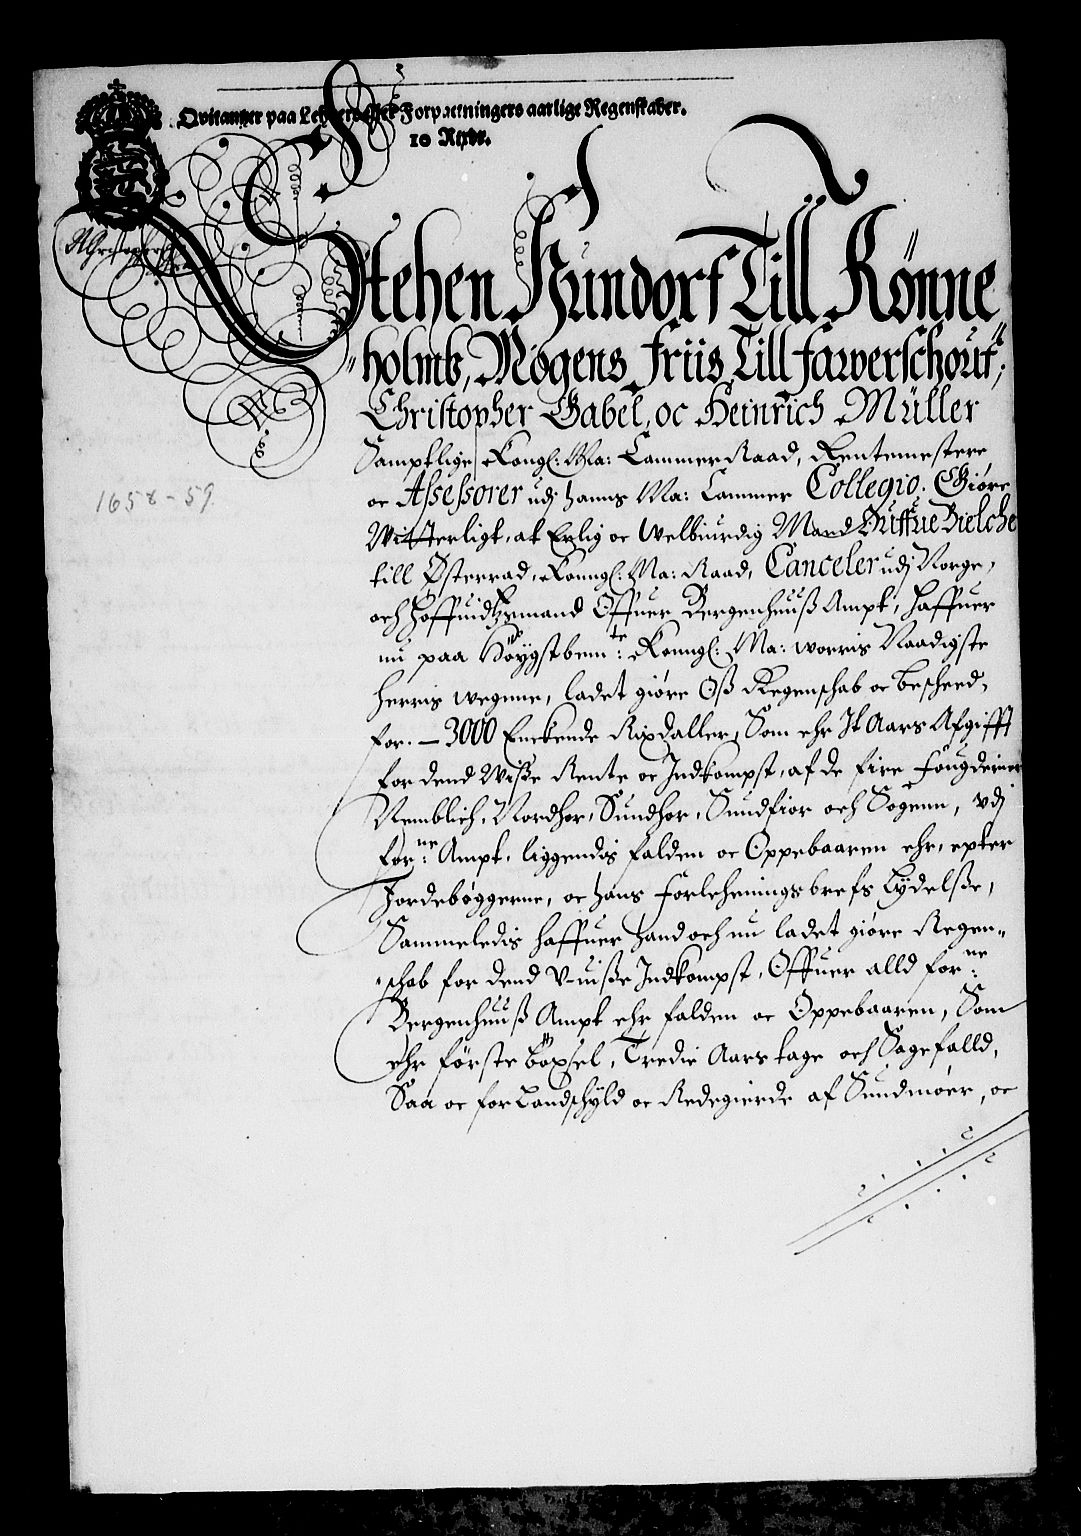 Qvitantzer paa Lehnernes eller Forpactningers aarlige Regenskaber.
10 Rixdr.
Stehen Hundorf Till Rønne
holmb, Mogens Friis Till Fawerschouf,
Christopher Gabel, oc Heinrich Müller
Samptlige Kongl: Ma: Cammer Raad, Rentemestere
oc Assessorer udj hanns Ma: Cammer Collegio. Giøre
Witterligt, at Erlig oc Welbiurdig Mand Ouffue Bielche
till Østerrad, Konngl: Ma: Raad, Canceler udj Norge,
och Høffuidtzmand Offuer Bergenhuuß Ampt, haffuer
nu paa Høygstbemte: Konngl: Ma: worris Naadigste
Herris wegnne, ladet giøre Oß Regenschab oc bescheed,
for. — 3000 Enckende Rixdaller, Som ehr It Aars Afgifft
for dend Wiße Rente oc Indkompst, af de fire Fougderier
Nemblich, Nordhor, Sundhor, Sundfior och Sogenn, vdj
forne: Ampt, liggendis falden oc Oppebaaren ehr, epter
Jordebøggerne, oc hans Forlehningsbrefs Lydelße,
Sammeledis haffuer hand och nu ladet giøre Regen-
schab for dend V-uiße Indkompst, Offuer alld forne:
Bergenhuuß Ampt ehr falden oc Oppebaaren, Som
ehr første Böxsel, Tredie Aars tage och Sagefalld,
Saa oc for Landschyld oc Redegierde af Sundmöer, oc
1658-59.